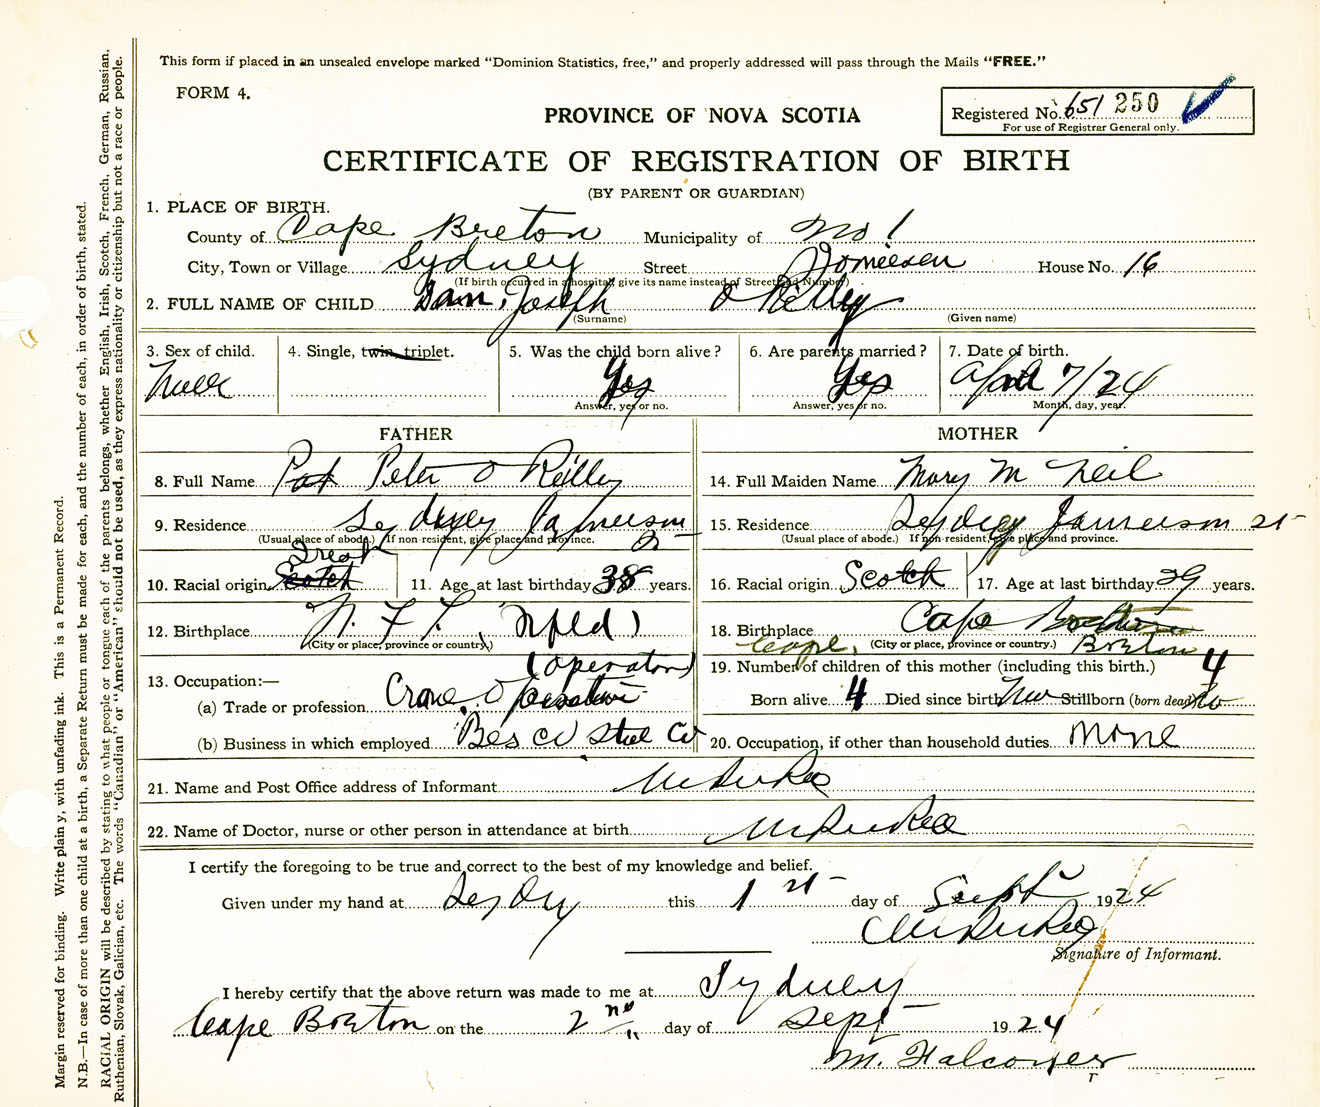 This form if placed in an unsealed envelope marked "Dominion Statistics, free," and properly addressed will pass through the Mails "FREE."
FORM 4.
Registered No. 651 250
For use of Registrar General only.
PROVINCE OF NOVA SCOTIA
CERTIFICATE OF REGISTRATION OF BIRTH
(BY PARENT OR GUARDIAN)
1. PLACE OF BIRTH.
County of Cape Breton Municipality of No 1
City, Town or Village Sydney Street House No. 16
(If birth occurred in a hospital give its name instead of Street and Number)
2. FULL NAME OF CHILD Joseph O Reilly
(Surname) (Given name)
3. Sex of child. 4. Single, twin, triplet. 5. Was the child born alive? 6. Are parents married? 7. Date of birth.
Male Yes Yes April 7/24
Answer, yes or no. Answer, yes or no. Month, day, year.
FATHER MOTHER
8. Full Name Pat Peter O Reilly 14. Full Maiden Name Mary M Neil
9. Residence Sydney Jameison St 15. Residence Sydney Jameison St
(Usual place of abode.) If non-resident, give place and province. (Usual place of abode.) If non-resident, give place and province.
10. Racial origin Scotch 11. Age at last birthday 38 years. 16. Racial origin Scotch 17. Age at last birthday 29 years.
12. Birthplace N. F. L. (Nfld) 18. Birthplace Cape Breton
(City or place, province or country.) Cape (City or place, province or country.) Breton
(operator) 19. Number of children of this mother (including this birth.) 4
13. Occupation:—
(a) Trade or profession Crane Operator Born alive 4 Died since birth No Stillborn (born dead) No
(b) Business in which employed Besco Steel Co 20. Occupation, if other than household duties None
21. Name and Post Office address of Informant
22. Name of Doctor, nurse or other person in attendance at birth
I certify the foregoing to be true and correct to the best of my knowledge and belief.
Given under my hand at Sydney this 1st day of Sept 1924
Signature of Informant.
I hereby certify that the above return was made to me at Sydney
Cape Breton on the 2nd day of Sept 1924
M. Falconer
Margin reserved for binding. Write plainy, with unfading ink. This is a Permanent Record.
N.B.—In case of more than one child at a birth, a Separate Return must be made for each, and the number of each, in order of birth, stated.
RACIAL ORIGIN will be described by stating to what people or tongue each of the parents belongs, whether English, Irish, Scotch, French, German, Russian,
Ruthenian, Slovak, Galician, etc. The words "Canadian" or "American" should not be used, as they express nationality or citizenship but not a race or people.